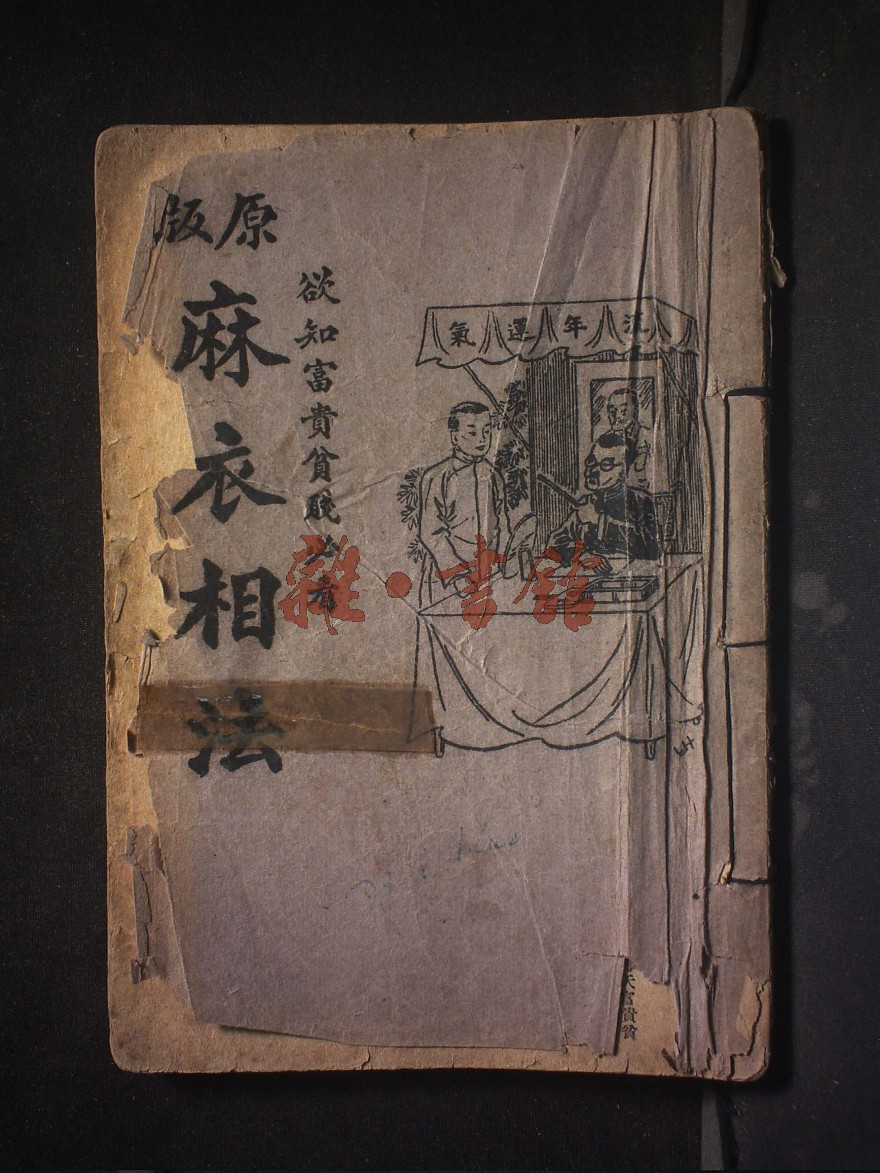 原版
麻衣相法
欲知富貴貧賤必
流年運氣
雜·書館
富貴貧